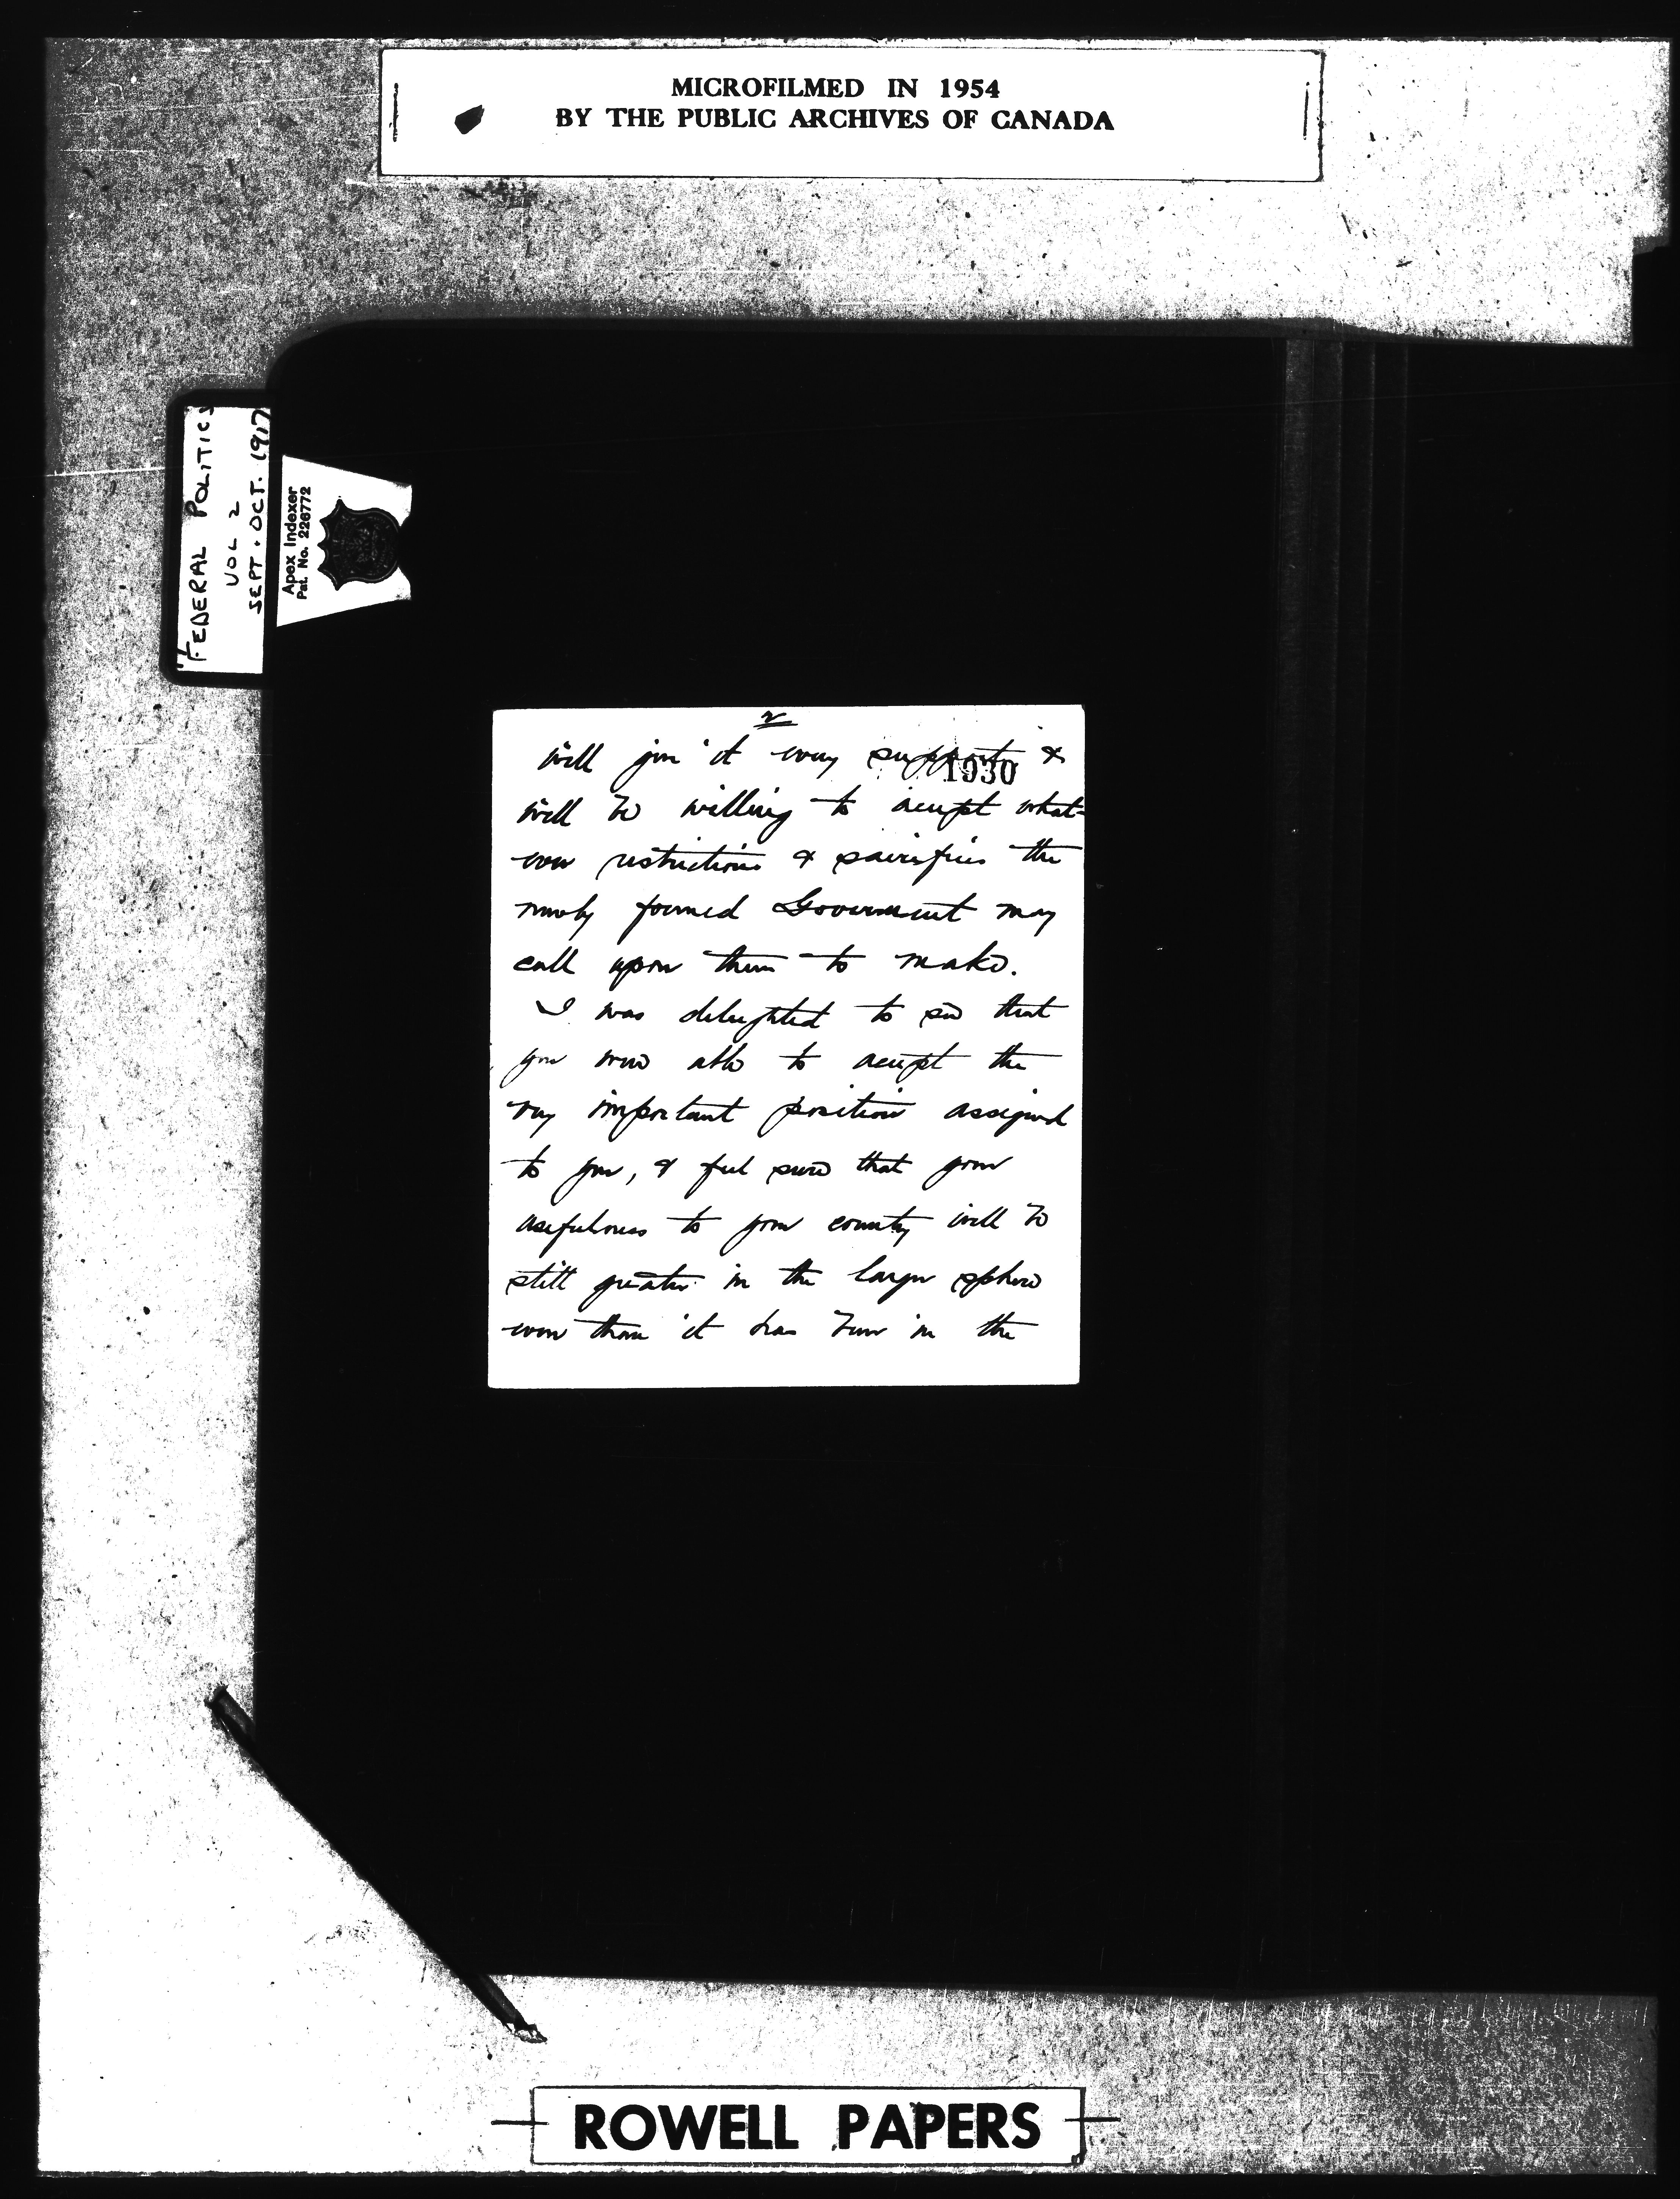 MICROFILMED IN 1954
BY THE PUBLIC ARCHIVES OF CANADA
FEDERAL POLITICS
VOL 2
SEPT. OCT. 1917
Apex Indexer
Pat. No. 226772
2
will give it every support &
1930
will be willing to accept what-
ever restrictions & sacrifices the
newly formed Government may
call upon them to make.
I was delighted to see that
you were able to accept the
very important position assigned
to you, & feel sure that your
usefulness to your country will be
still greater in the larger sphere
even than it has been in the
ROWELL PAPERS